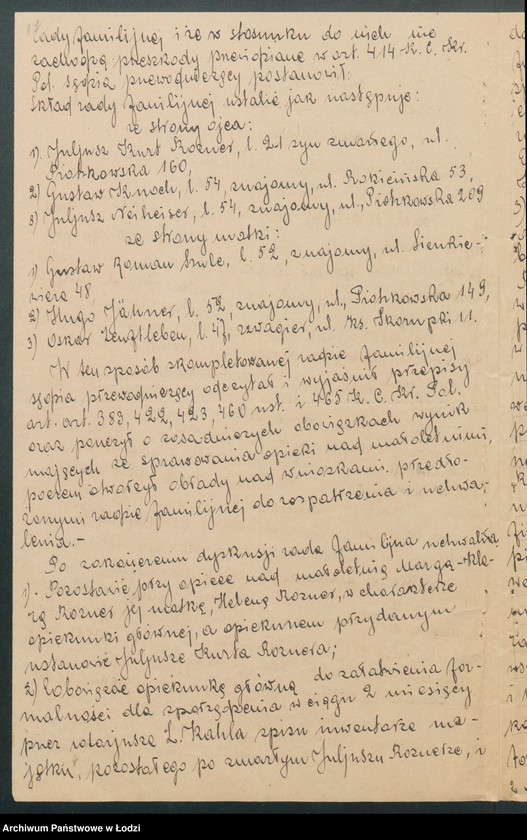 rady familijnej i że w stosunku do nich nie
zachodzą przeszkody przewidziane w art. 414 K. C. Kr.
Pol. sędzia przewodniczący postanowił:
skład rady familijnej ustalić jak następuje:
ze strony ojca:
1). Juljusz Kurt Rozner, l. 21 syn zmarłego, ul.
Piotrkowska 160,
2) Gustaw Knoch, l. 54, znajomy, ul. Rokicińska 53,
3) Juljusz Neiheiser, l. 54, znajomy, ul. Piotrkowska 209
ze strony matki:
1) Gustaw Roman l. 52, znajomy, ul. Sienkie-
wicza 48,
2) Hugo Jähner, l. 52, znajomy, ul. Piotrkowska 149,
3) Oskar Zenftleben, l. 47, szwagier, ul. Ks. Skorupki 11.
W ten sposób skompletowanej radzie familijnej
sędzia przewodniczący odczytał i wyjaśnił przepisy
art. art. 383, 422, 423, 460 ust. i 465 K. C. Kr. Pol.
oraz pouczył o zasadniczych obowiązkach wynik
mających ze sprawowania opieki nad małoletnimi,
poczem otworzył obrady nad wnioskami przedło-
żonymi radzie familijnej do rozpatrzenia i uchwa-
lenia.-
Po zakończeniu dyskusji rada familijna uchwaliła
1). Pozostawić przy opiece nad małoletnią Margą-Kla-
rą Rozner jej matkę, Helenę Rozner, w charakterze
opiekunki głównej, a opiekunem przydanym
ustanowić Juljusza Kurta Roznera;
2) Zobowiązać opiekunkę główną do załatwienia for-
malności dla sporządzenia w ciągu 2 miesięcy
przez notarjusza L. Kahla spisu inwentarza ma-
jątku, pozostałego po zmarłym Juljuszu Roznerze, i
Archiwum Państwowe w Łodzi